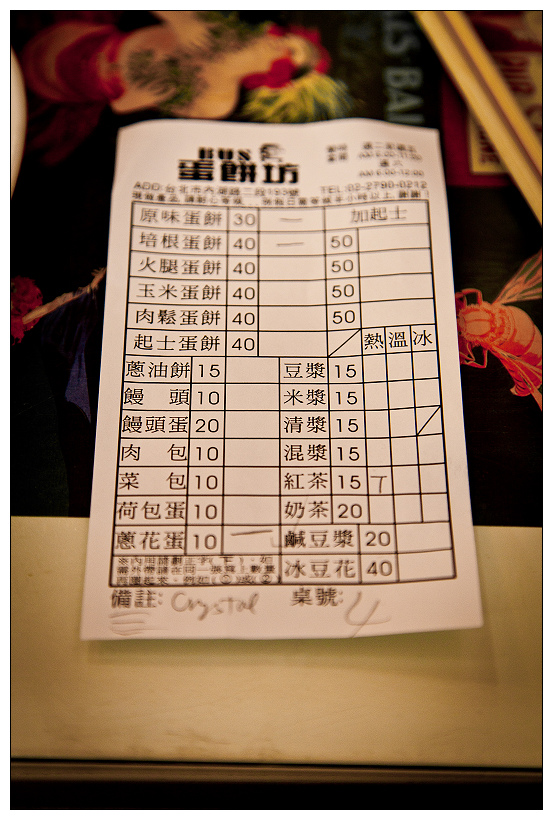 BUS
蛋餅坊
ADD:台北市內湖路二段193號 TEL:02-2790-0212
原味蛋餅 30 一 加起士
培根蛋餅 40 一 50
火腿蛋餅 40 50
玉米蛋餅 40 50
肉鬆蛋餅 40 50
起士蛋餅 40 熱 溫 冰
蔥油餅 15 豆漿 15
饅頭 10 米漿 15
饅頭蛋 20 清漿 15
肉包 10 混漿 15
菜包 10 紅茶 15
荷包蛋 10 奶茶 20
蔥花蛋 10 一 鹹豆漿 20
冰豆花 40
備註: Crystal 桌號: 4